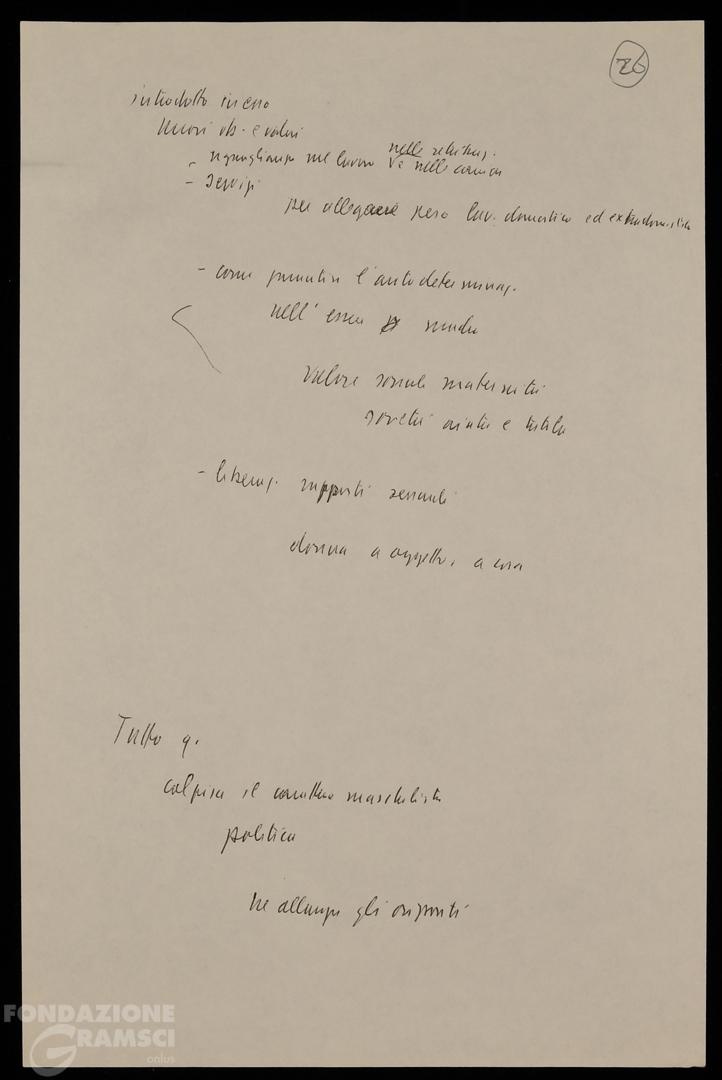 26
introdotto in esso
nuovi ob. e valori
nelle retribuz.
- uguaglianza nel lavoro V e nelle carriere
- Servizi
per alleggerire peso lav. domestico ed extradomestico
- come garantire l'autodeterminaz.
nell' essere madre
Valore sociale maternità
società aiuta e tutela
- liberaz. rapporti sessuali
donna a oggetto, a cosa
Tutto q.
colpisce il carattere maschilista
politica
ne allarga gli orizzonti
FONDAZIONE
GRAMSCI
onlus